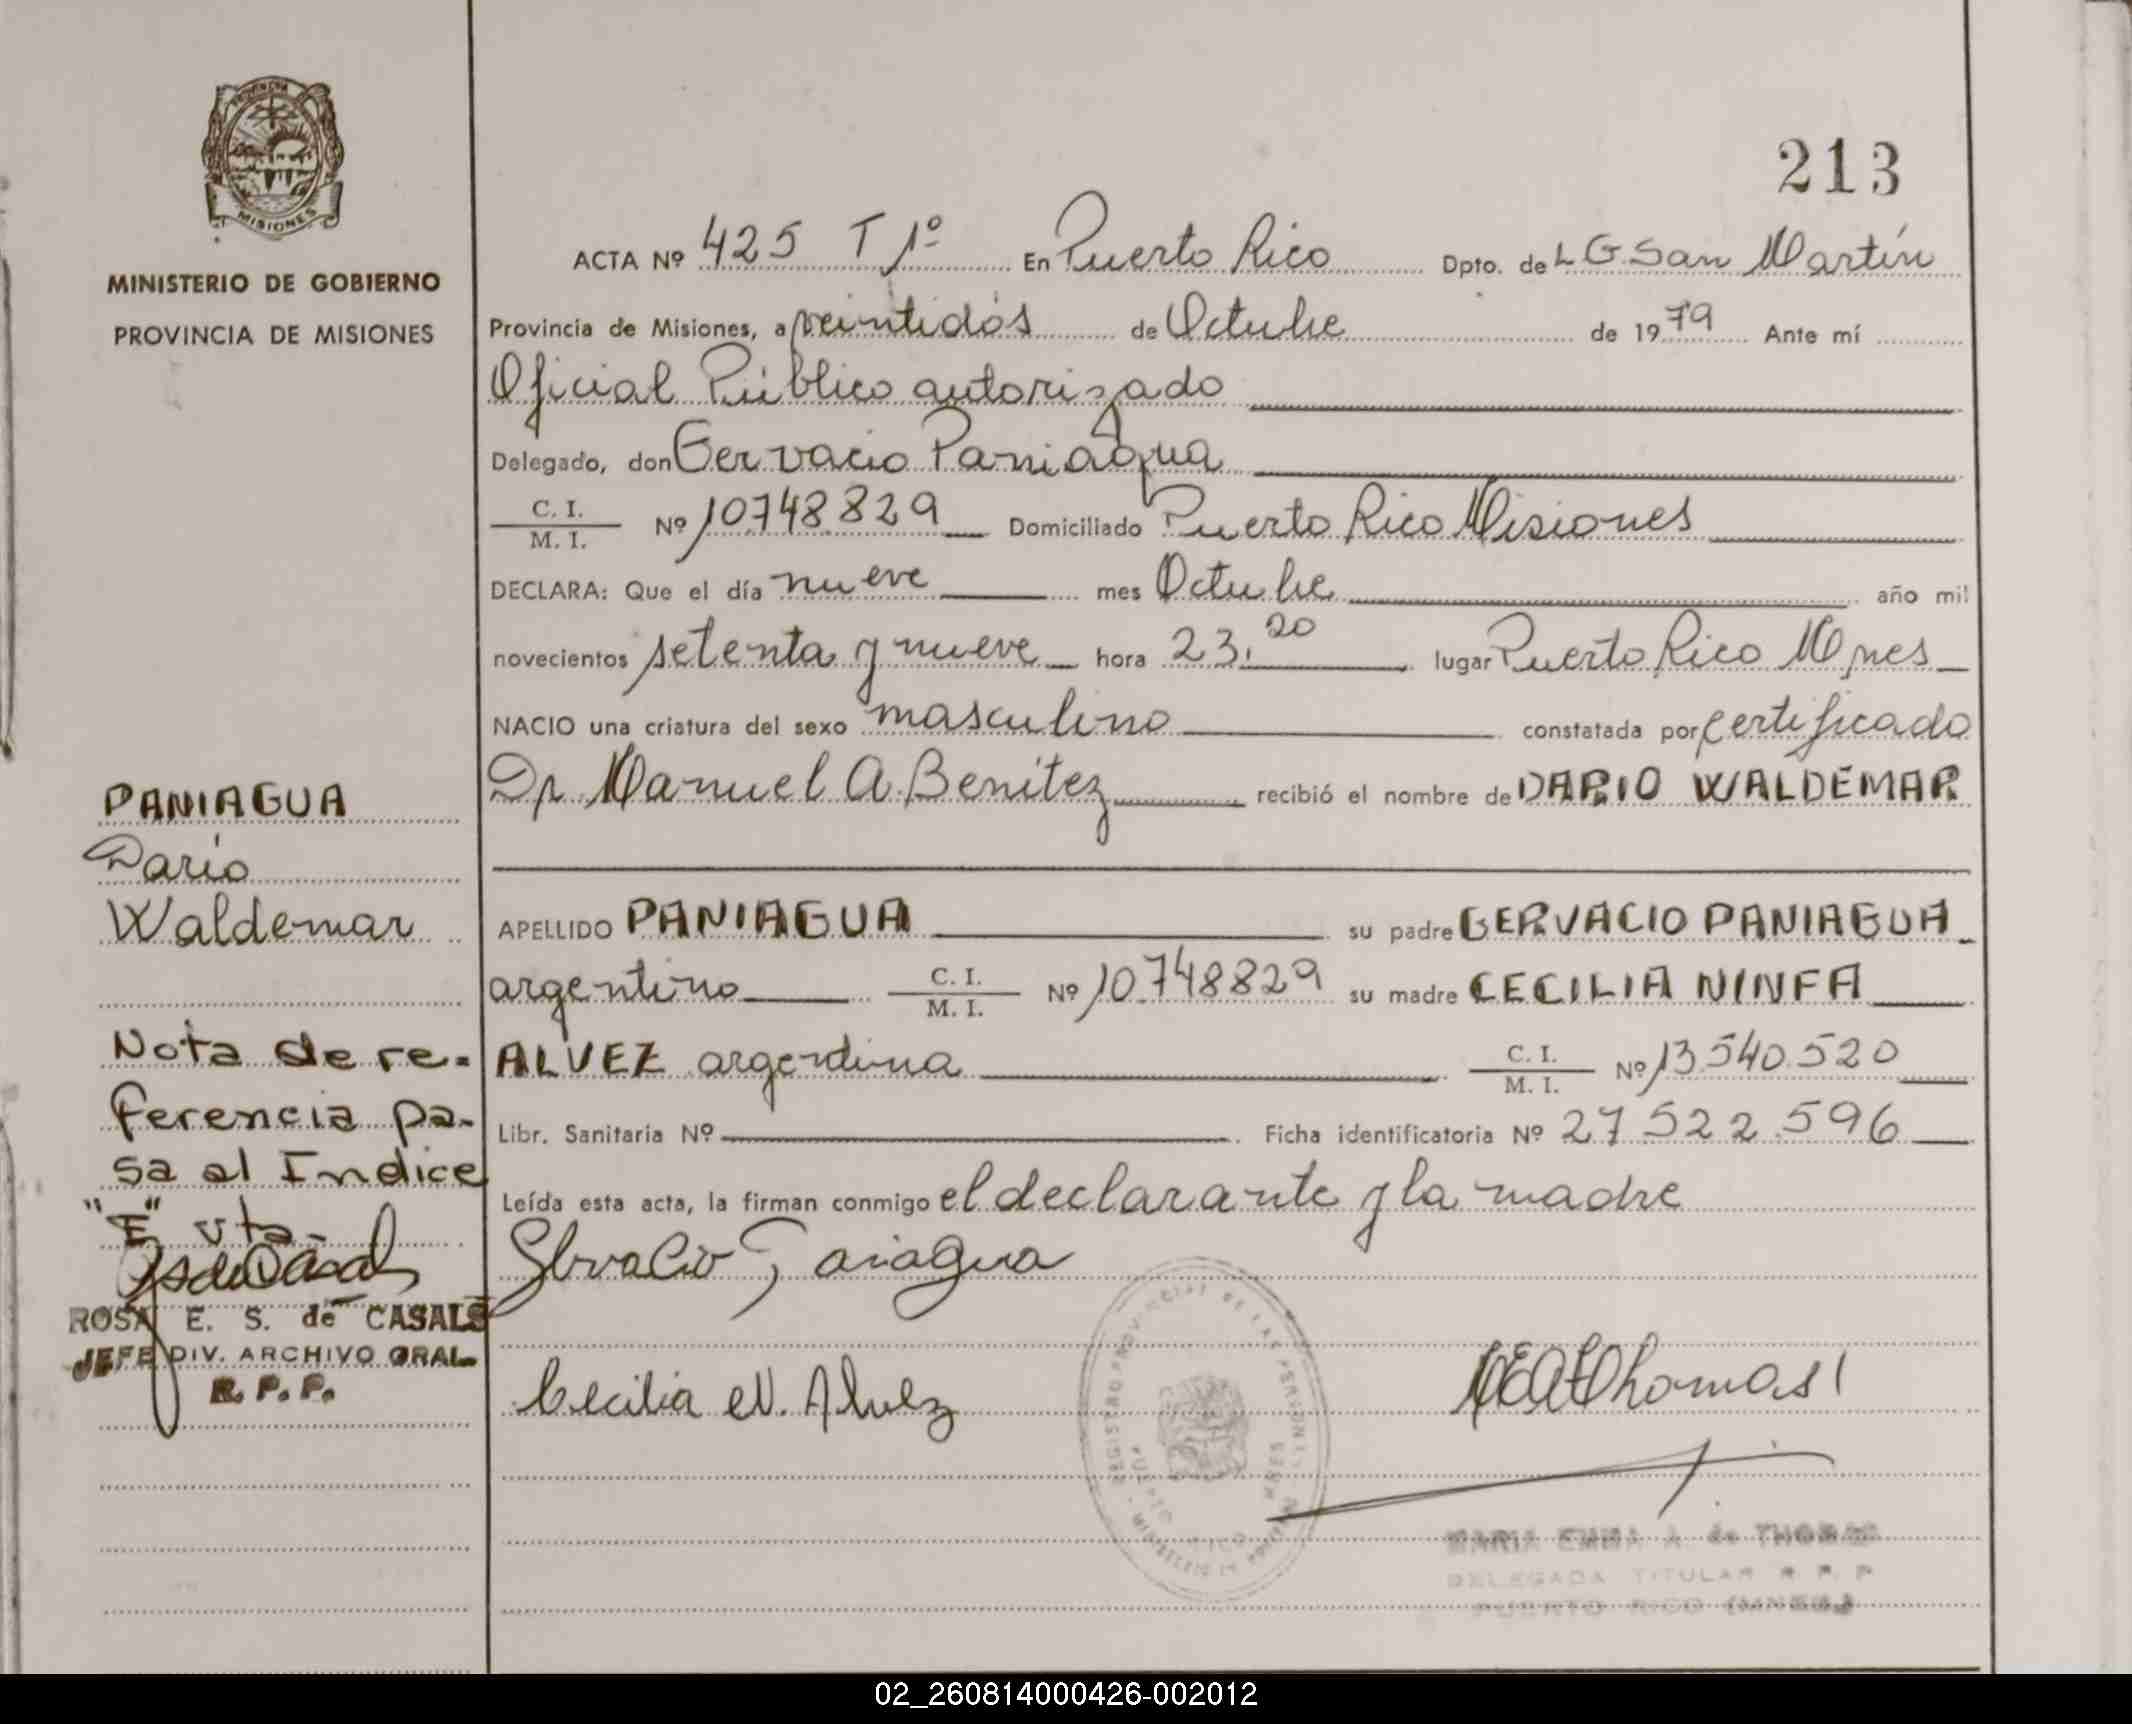 PROVINCIA
MISIONES
MINISTERIO DE GOBIERNO
PROVINCIA DE MISIONES
213
ACTA Nº 425 T 1º En Puerto Rico Dpto. de L G San Martín
Provincia de Misiones, a veintidós de Octubre de 1979 Ante mí
Oficial Público autorizado
Delegado, don Gervacio Paniagua
C. I.
M. I. Nº 10748829 Domiciliado Puerto Rico Misiones
DECLARA: Que el día nueve mes Octubre año mil
novecientos setenta y nueve hora 23.20 lugar Puerto Rico Mnes
NACIO una criatura del sexo masculino constatada por certificado
Dr. Manuel A. Benítez recibió el nombre de DARIO WALDEMAR
APELLIDO PANIAGUA su padre GERVACIO PANIAGUA
argentino C. I.
M. I. Nº 10748829 su madre CECILIA NINFA
ALVEZ argentina C. I.
M. I. Nº 13.540.520
Libr. Sanitaria Nº Ficha identificatoria Nº 27.522.596
Leída esta acta, la firman conmigo el declarante y la madre
Gervacio Paniagua
Cecilia N. Alvez
MEAThomas
MARIA EMMA A. de THOMAS
DELEGADA TITULAR R. P. P.
PUERTO RICO (MNES.)
REGISTRO PROVINCIAL DE LAS PERSONAS
PUERTO RICO
MNES
PANIAGUA
Darío
Waldemar
Nota de re-
ferencia pa-
sa al Indice
"E" vta.
ROSA E. S. de CASALS
JEFE DIV. ARCHIVO GRAL.
R. P. P.
02_260814000426-002012